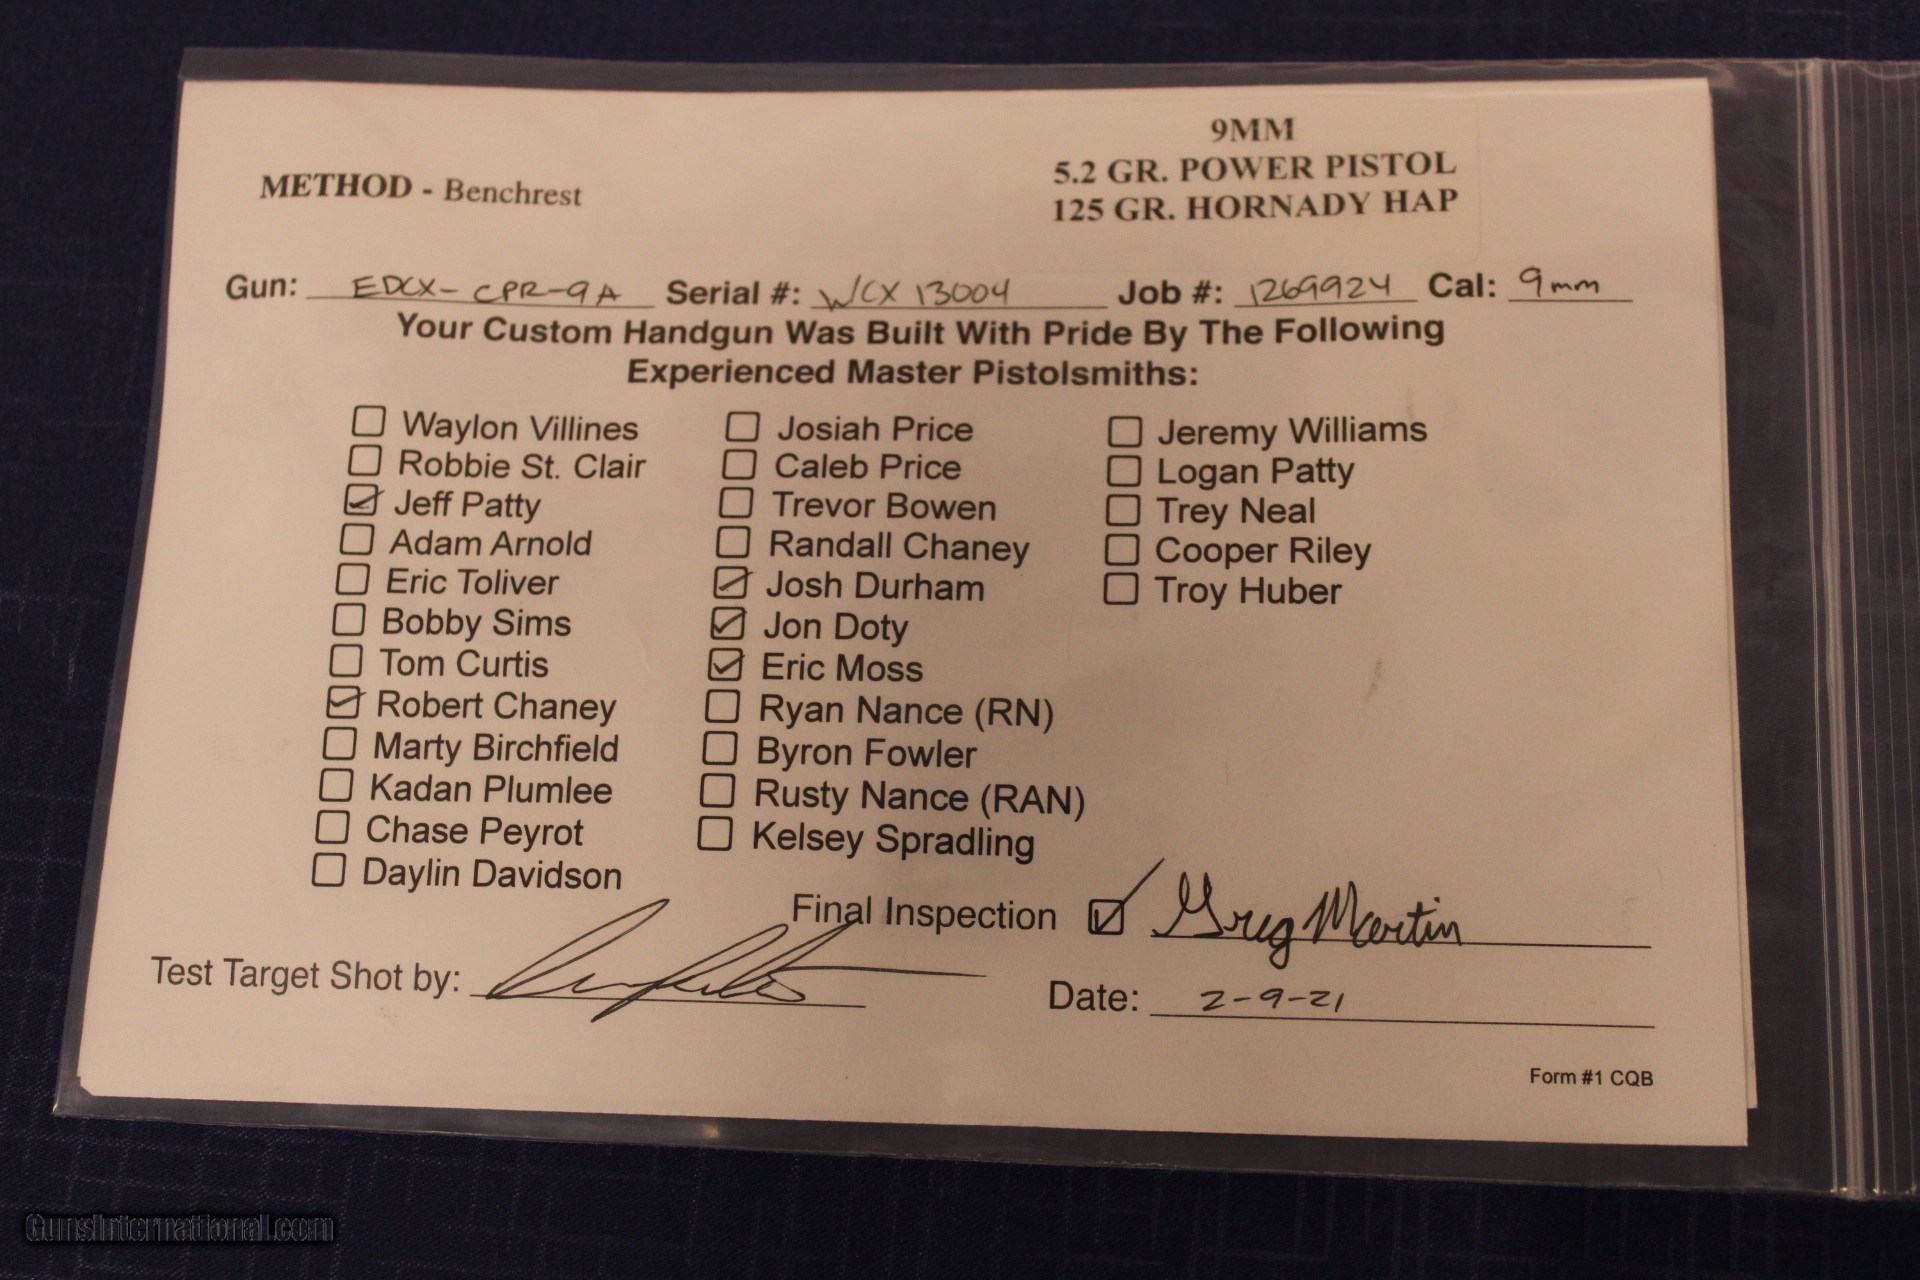 9MM
5.2 GR. POWER PISTOL
125 GR. HORNADY HAP
METHOD - Benchrest
Gun: EDCX-CPR-9A Serial #: WCX13004 Job #: 1269924 Cal: 9mm
Your Custom Handgun Was Built With Pride By The Following
Experienced Master Pistolsmiths:
Waylon Villines
Robbie St. Clair
Jeff Patty
Adam Arnold
Eric Toliver
Bobby Sims
Tom Curtis
Robert Chaney
Marty Birchfield
Kadan Plumlee
Chase Peyrot
Daylin Davidson
Josiah Price
Caleb Price
Trevor Bowen
Randall Chaney
Josh Durham
Jon Doty
Eric Moss
Ryan Nance (RN)
Byron Fowler
Rusty Nance (RAN)
Kelsey Spradling
Jeremy Williams
Logan Patty
Trey Neal
Cooper Riley
Troy Huber
Final Inspection Greg Martin
Test Target Shot by:
Date: 2-9-21
Form #1 CQB
GunsInternational.com